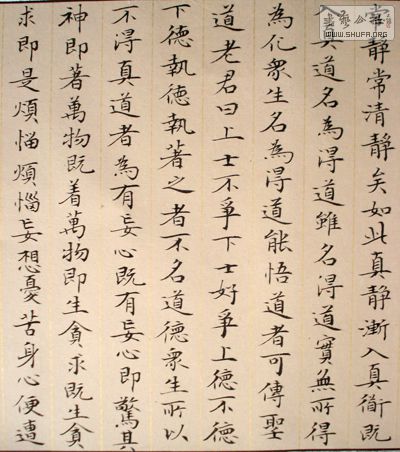 常靜常清靜矣如此真靜漸入真衜既
入真道名為得道雖名得道實無所得
為化眾生名為得道能悟道者可傳聖
道老君曰上士不爭下士好爭上德不德
下德執德執著之者不名道德眾生所以
不得真道者為有妄心既有妄心即驚其
神即著萬物既着萬物即生貪求既生貪
求即是煩惱煩惱妄想憂苦身心便遭
WWW.SHUFA.ORG